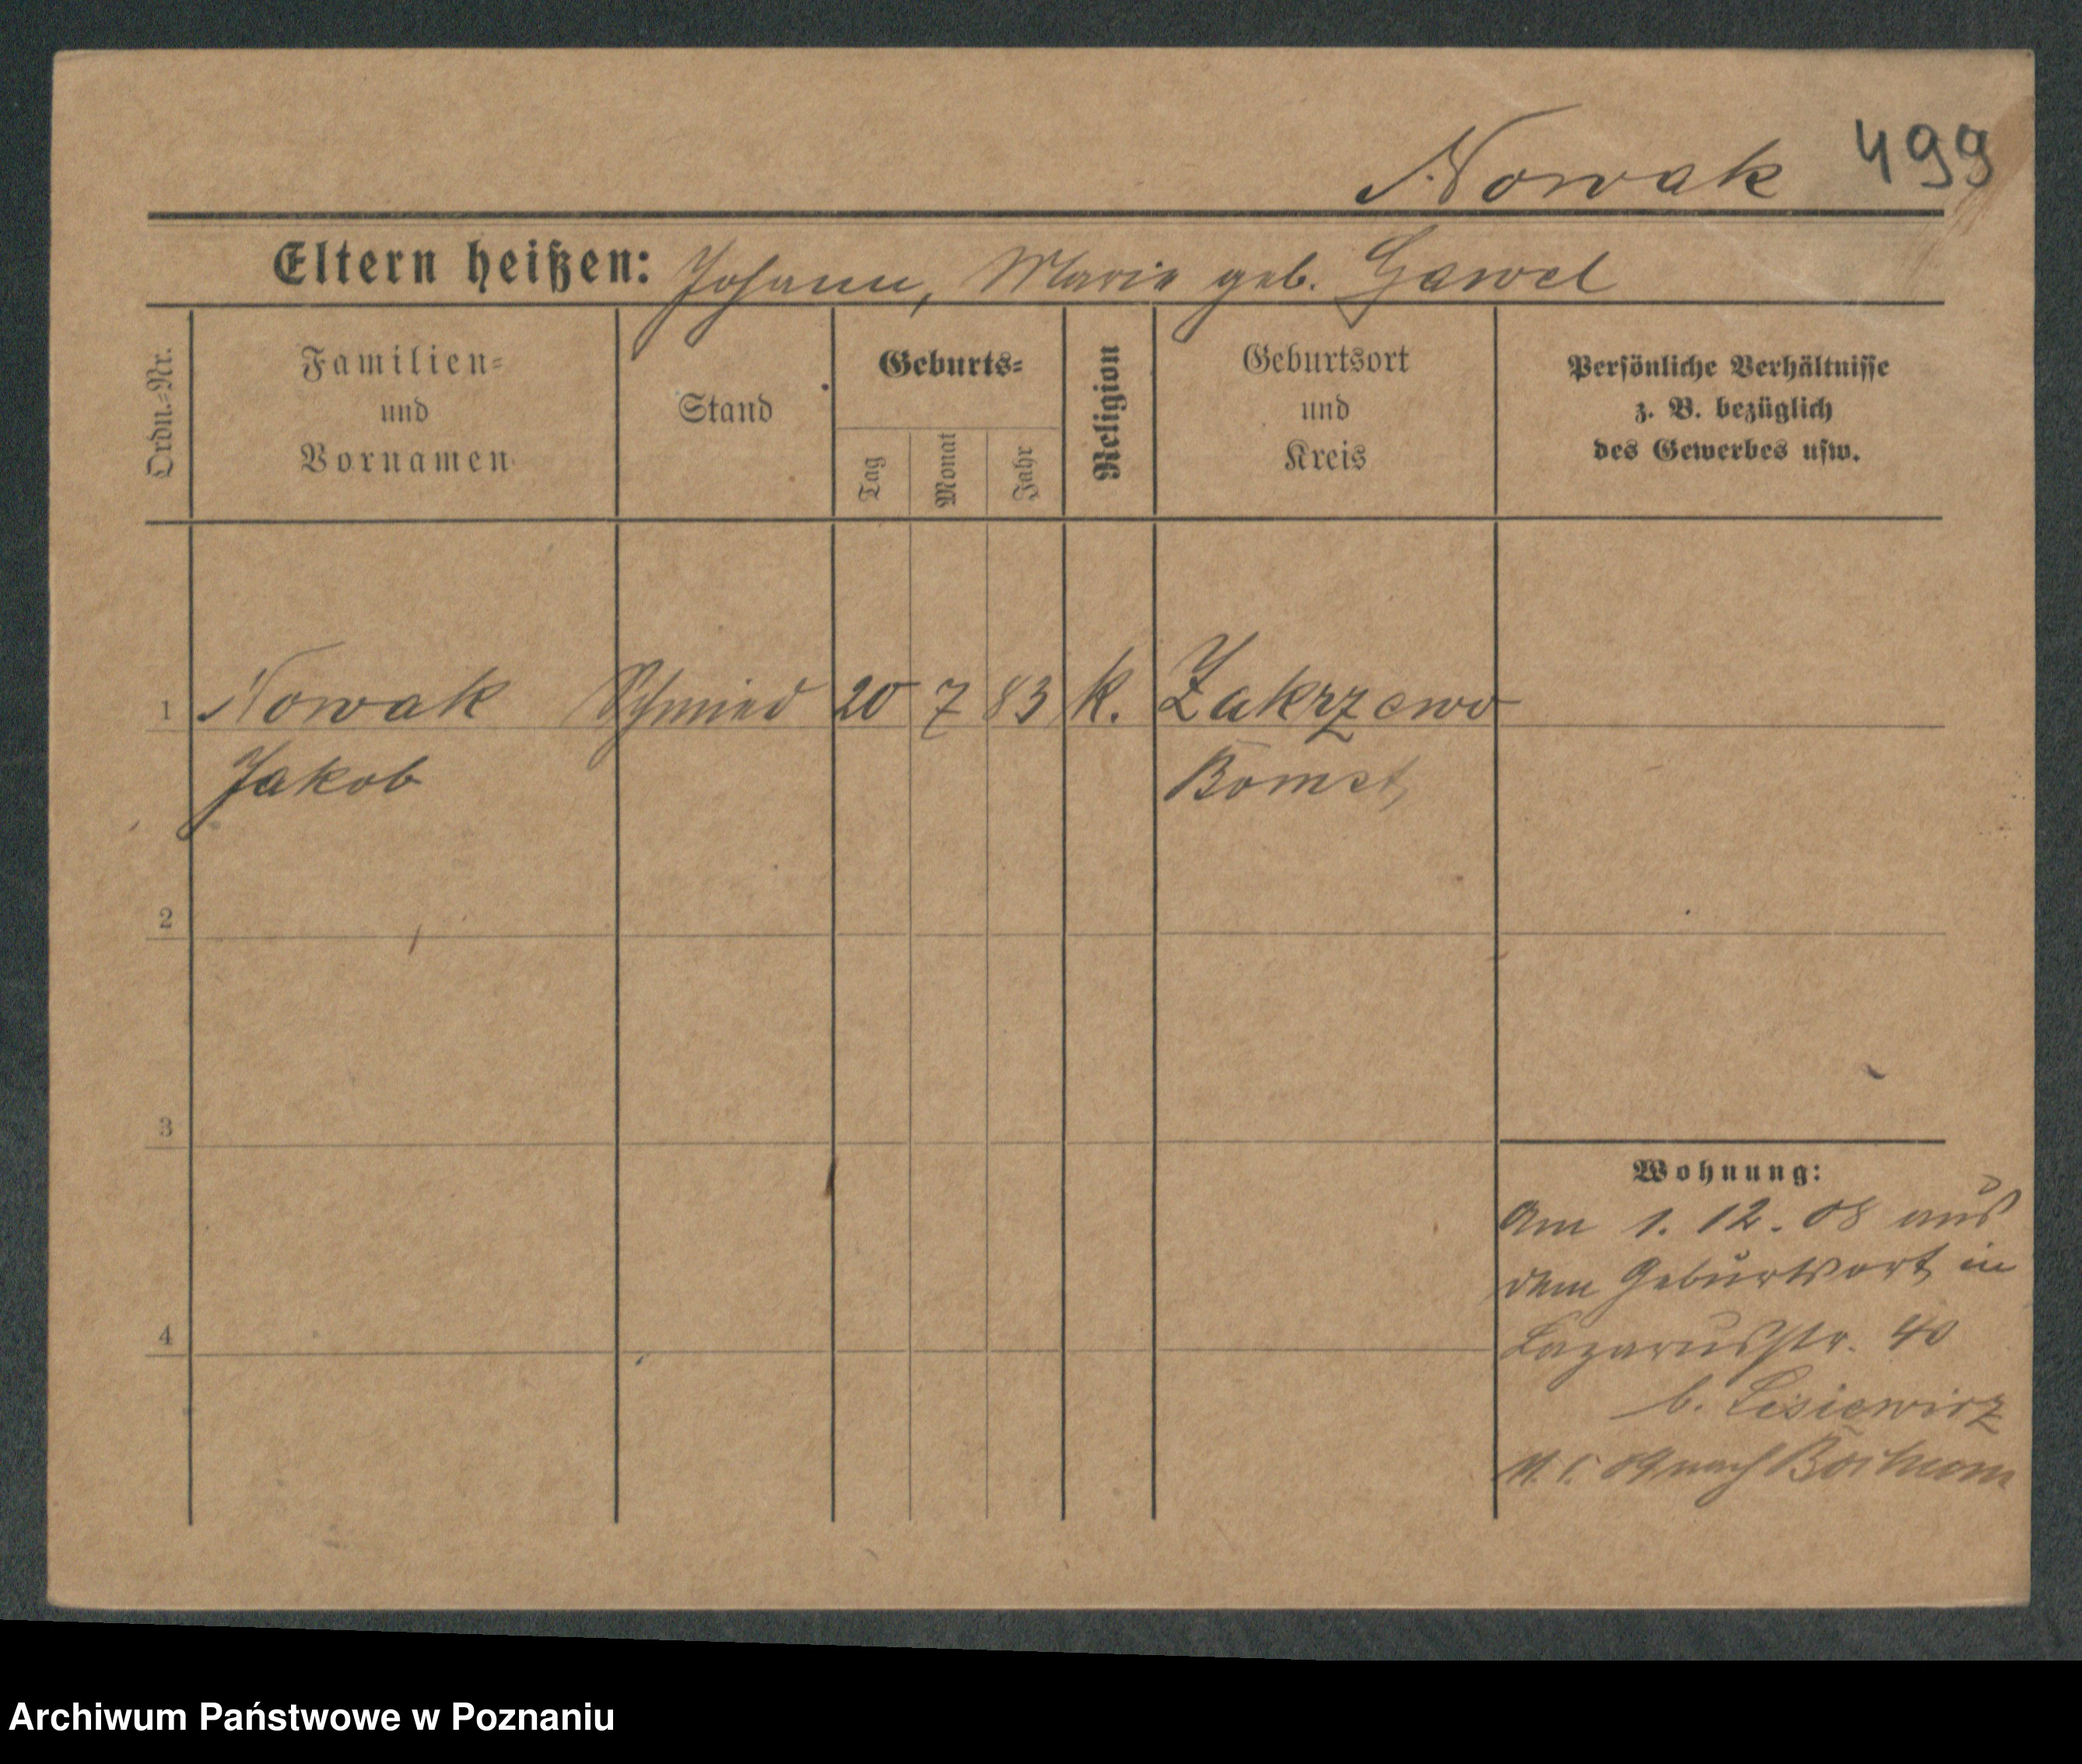 Nowak 499
Eltern heißen: Johann, Marie geb. Gawel
Ordn.-Nr.
Familien-
und
Vornamen
Stand
Geburts-
Tag
Monat
Jahr
Religion
Geburtsort
und
Kreis
Persönliche Verhältnisse
z. B. bezüglich
des Gewerbes usw.
1 Nowak Schmied 20 7 83 k. Zakrzewo
Jakob Bomst
2
3
Wohnung:
Am 1. 12. 08 aus
dem Geburtsort in
4
Lazarusstr. 40
b. Lisiewicz
09 nach
Archiwum Państwowe w Poznaniu